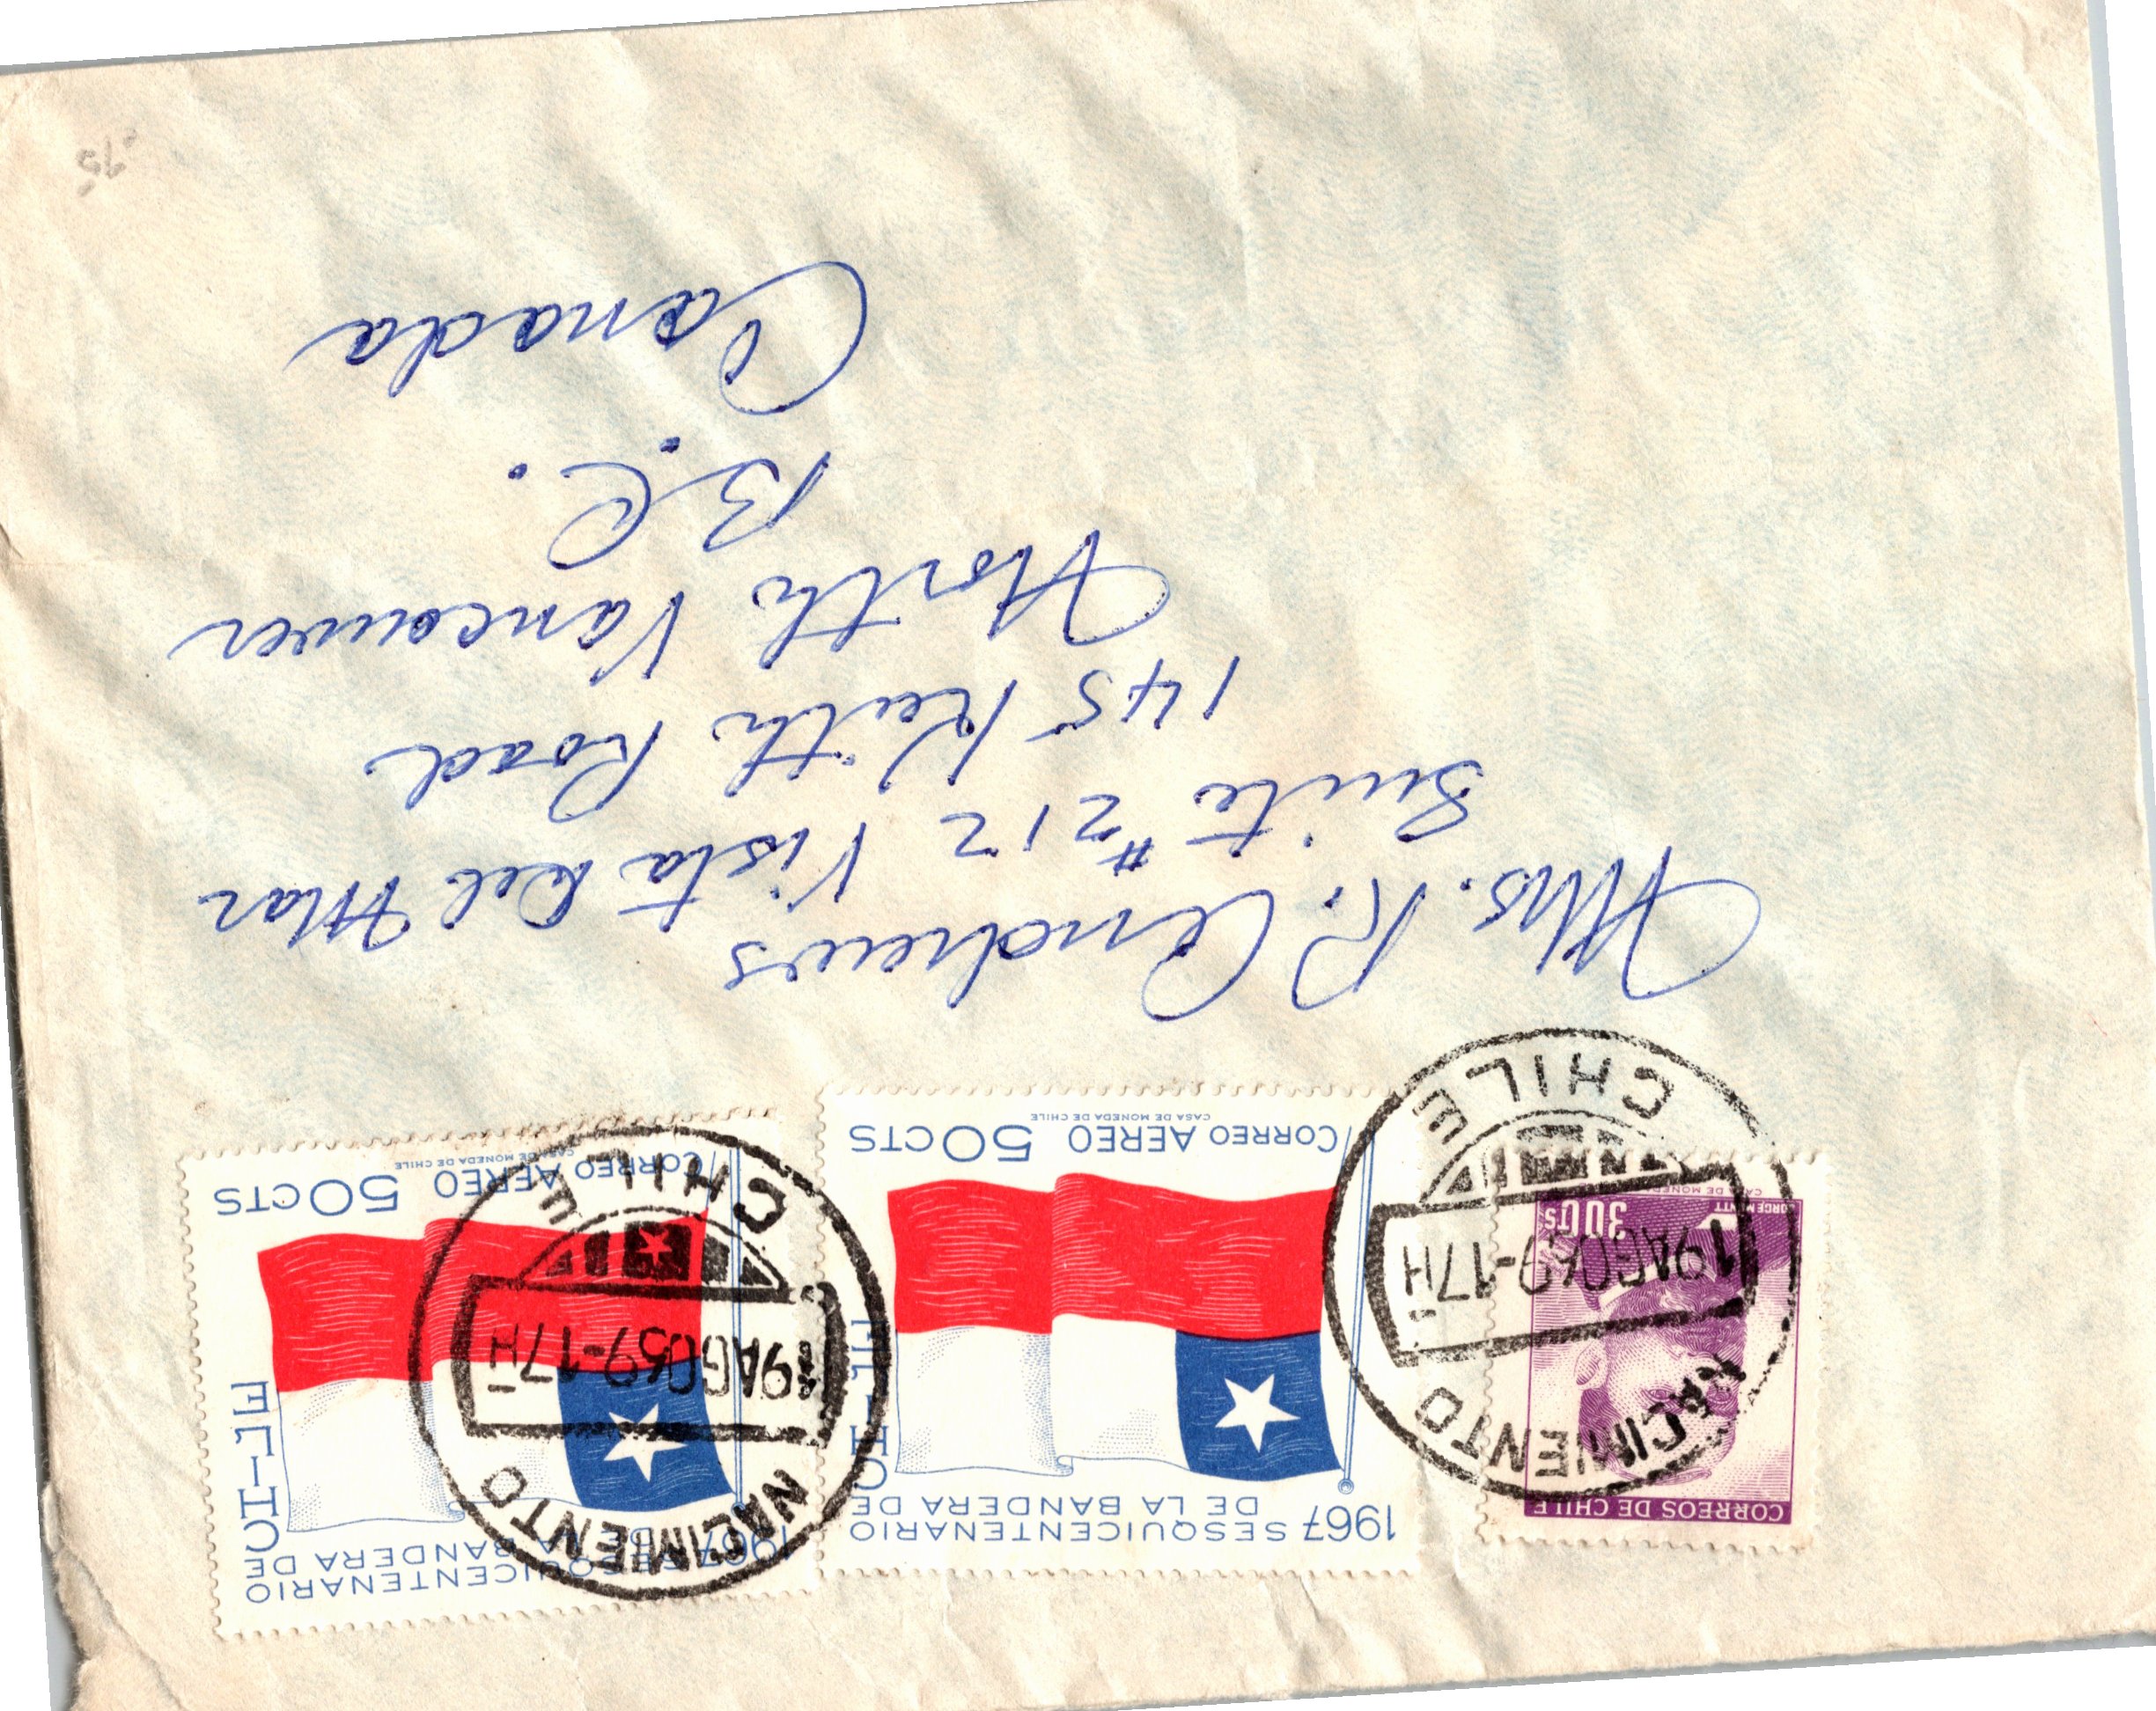 CORREOS DE CHILE
30 CTS
JORGE MONTT
CASA DE MONEDA
NACIMIENTO
19 AGO 69-17H
CHILE
1967 SESQUICENTENARIO
DE LA BANDERA DE
CHILE
CORREO AEREO 50 CTS
CASA DE MONEDA DE CHILE
1967 SESQUICENTENARIO
DE LA BANDERA DE
CHILE
CORREO AEREO 50 CTS
CASA DE MONEDA DE CHILE
NACIMIENTO
19 AGO 69-17H
CHILE
Mrs. R. Andrews
Suite #212 Vista Del Mar
145 Keith Road
North Vancouver
B.C.
Canada
.95